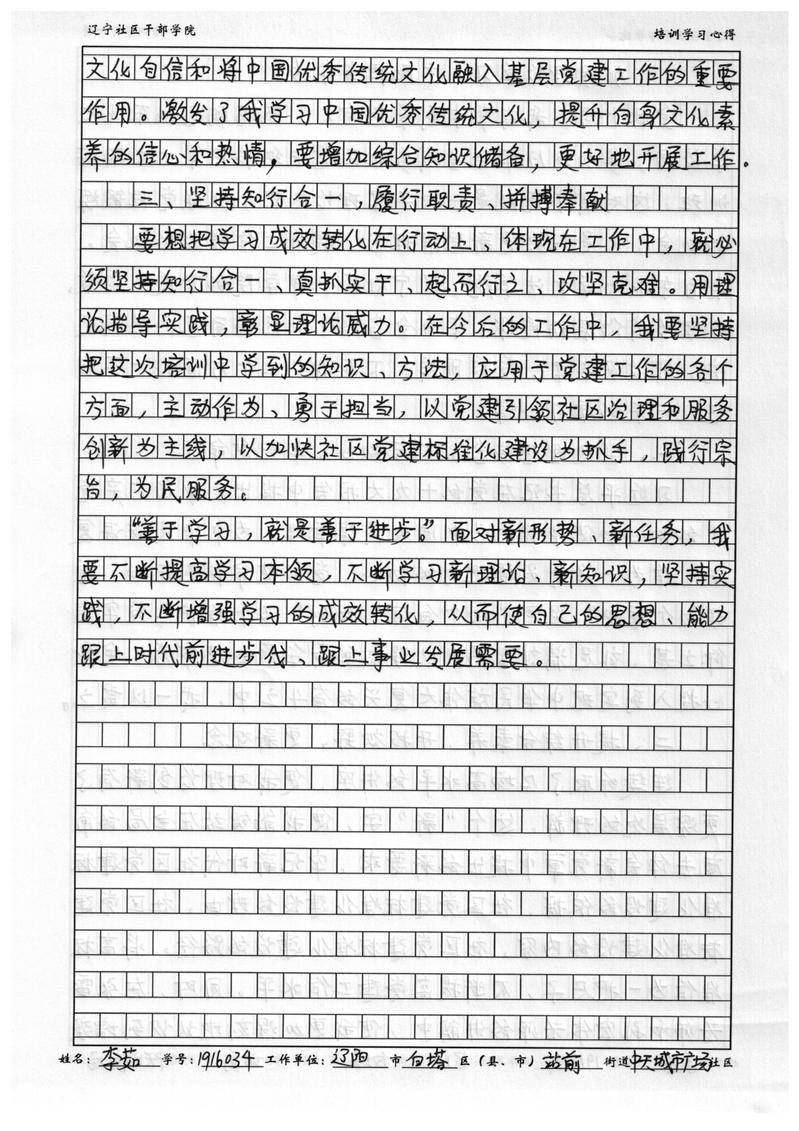 辽宁社区干部学院 培训学习心得
文化自信和将中国优秀传统文化融入基层党建工作的重要
作用。激发了我学习中国优秀传统文化，提升自身文化素
养的信心和热情，要增加综合知识储备，更好地开展工作。
三、坚持知行合一，履行职责、拼搏奉献
要想把学习成效转化在行动上、体现在工作中，就必
须坚持知行合一、真抓实干、起而行之、攻坚克难，用理
论指导实践，彰显理论威力。在今后的工作中，我要坚持
把这次培训中学到的知识、方法，应用于党建工作的各个
方面，主动作为、勇于担当，以党建引领社区治理和服务
创新为主线，以加快社区党建标准化建设为抓手，践行宗
旨，为民服务。
“善于学习，就是善于进步。”面对新形势、新任务，我
要不断提高学习本领，不断学习新理论、新知识，坚持实
践，不断增强学习的成效转化，从而使自己的思想、能力
跟上时代前进步伐、跟上事业发展需要。
姓名：李茹 学号：1916034 工作单位：辽阳 市 白塔 区（县、市）站前 街道 中天城市广场 社区